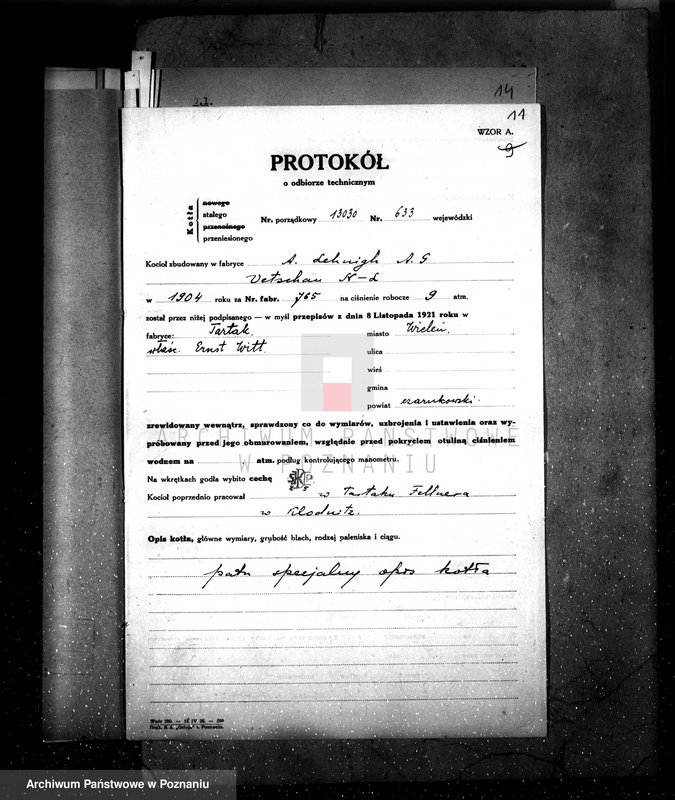 14
2.1.
11
WZOR A.
9
PROTOKÓŁ
o odbiorze technicznym
Kotła
nowego
stałego
przenośnego
przeniesionego
Nr. porządkowy 13030 Nr. 633 wojewódzki
Kocioł zbudowany w fabryce A. Lehnigk A. G
Vetschau N-L
w 1904 roku za Nr. fabr. 765 na ciśnienie robocze 9 atm.
został przez niżej podpisanego — w myśl przepisów z dnia 8 Listopada 1921 roku w
fabryce: Tartak miasto Wieleń.
właśc. Ernst Witt. ulica
wieś
gmina
powiat czarnkowski.
zrewidowany wewnątrz, sprawdzony co do wymiarów, uzbrojenia i ustawienia oraz wy-
próbowany przed jego obmurowaniem, względnie przed pokryciem otuliną ciśnieniem
wodzem na atm. podług kontrolującego manometru.
ARCHIWUM PAŃSTWOWE
W POZNANIU
Na wkrętkach godła wybito cechę
Kocioł poprzednio pracował w Tartaku Fellnera
w Kłodnitz.
Opis kotła, główne wymiary, grubość blach, rodzaj paleniska i ciągu.
patrz specjalny opis kotła
Wzór 250. — 12 IV 28. — 200
Druk. S. A. „Ostoja" w Poznaniu.
Archiwum Państwowe w Poznaniu